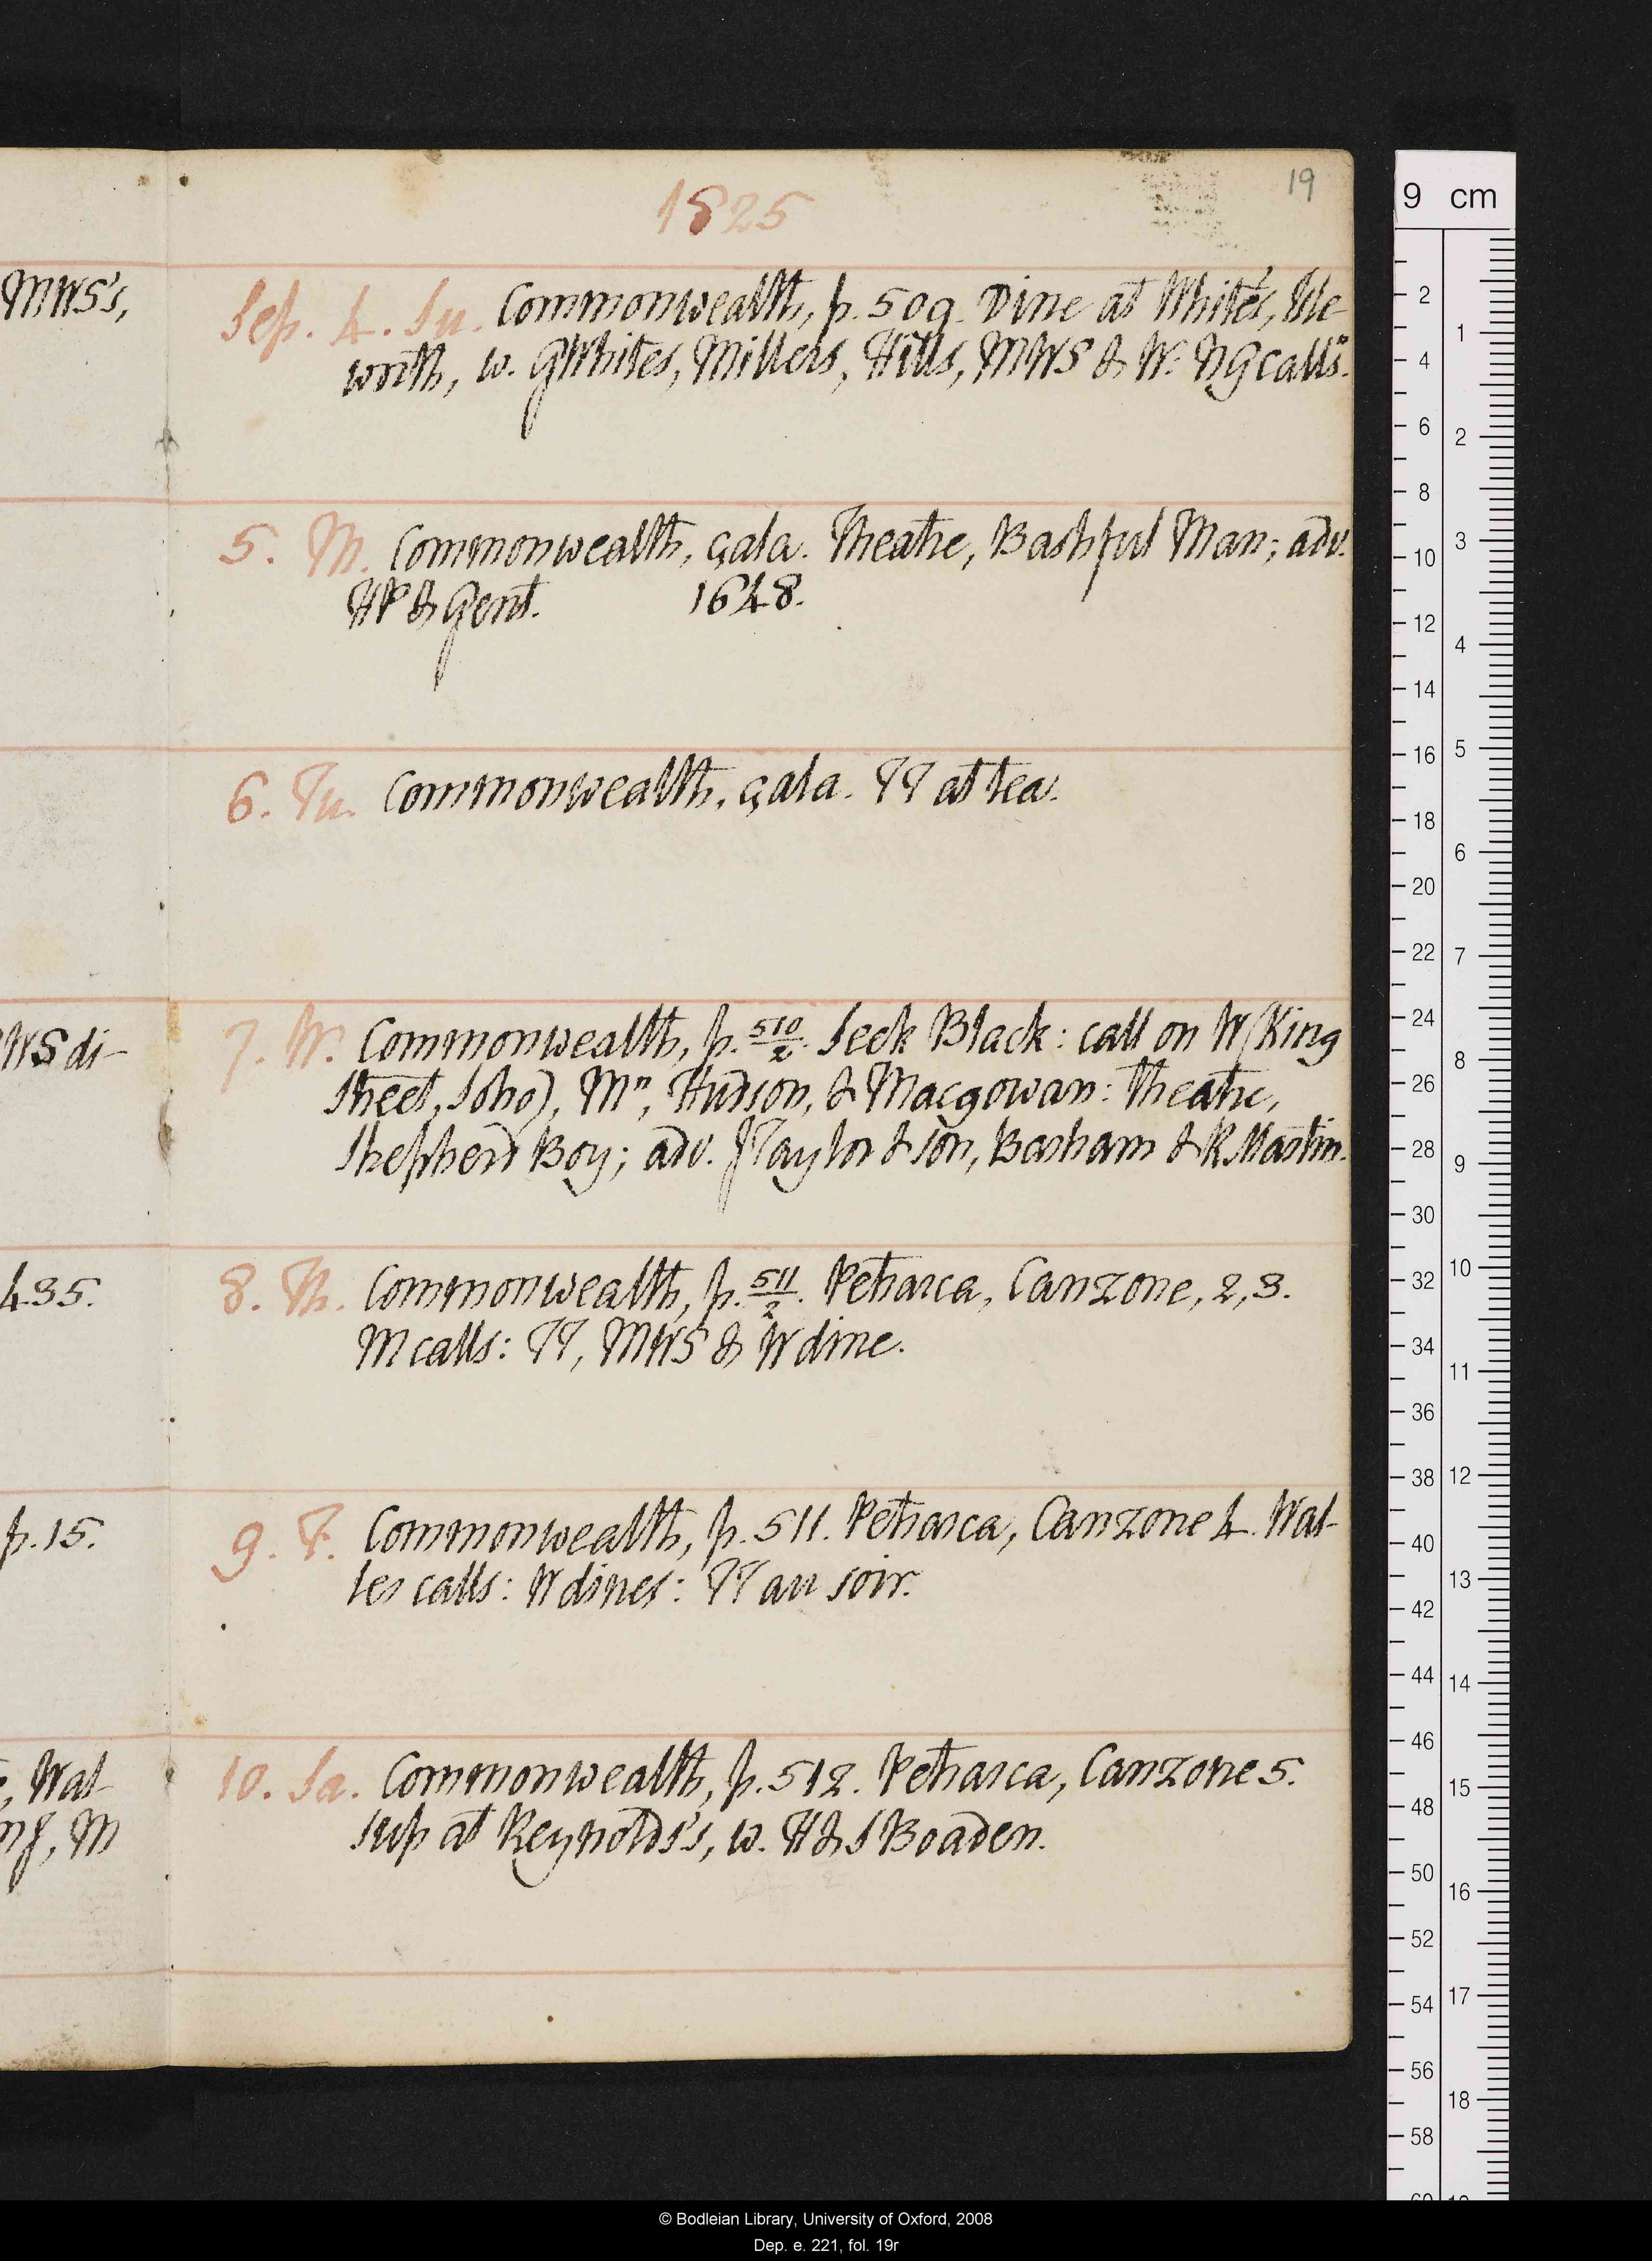 19
1825
MWS's,
Sep. 4. Su. Commonwealth, p. 509. Dine at White's, Isle-
worth, w. GWhites, Millers, Hills, MWS & W. NGcalls.
5. M. Commonwealth, çala. Theatre, Bashful Man; adv.
HP & Gent. 1648.
6. Tu. Commonwealth, çala. TT at tea.
WS di-
7. W. Commonwealth, p. 510/2. Seek Black: call on W (King
Street, Soho), Mn, Hudson, & Macgowan: Theatre,
Shepherd Boy; adv. JTaylor & son, Basham & RMartin.
435.
8. Th. Commonwealth, p. 511/2. Petrarca, Canzone, 2, 3.
M calls: TT, MWS & W dine.
p. 15.
9. F. Commonwealth, p. 511. Petrarca, Canzone 4. Wal-
ler calls: W dines: TT au soir.
, Wal-
10. Sa. Commonwealth, p. 512. Petrarca, Canzone 5.
, M
Sup at Reynolds's, w. H & S Boaden.
9 cm
2
4
6
8
10
12
14
16
18
20
22
24
26
28
30
32
34
36
38
40
42
44
46
48
50
52
54
56
58
1
2
3
4
5
6
7
8
9
10
11
12
13
14
15
16
17
18
© Bodleian Library, University of Oxford, 2008
Dep. e. 221, fol. 19r